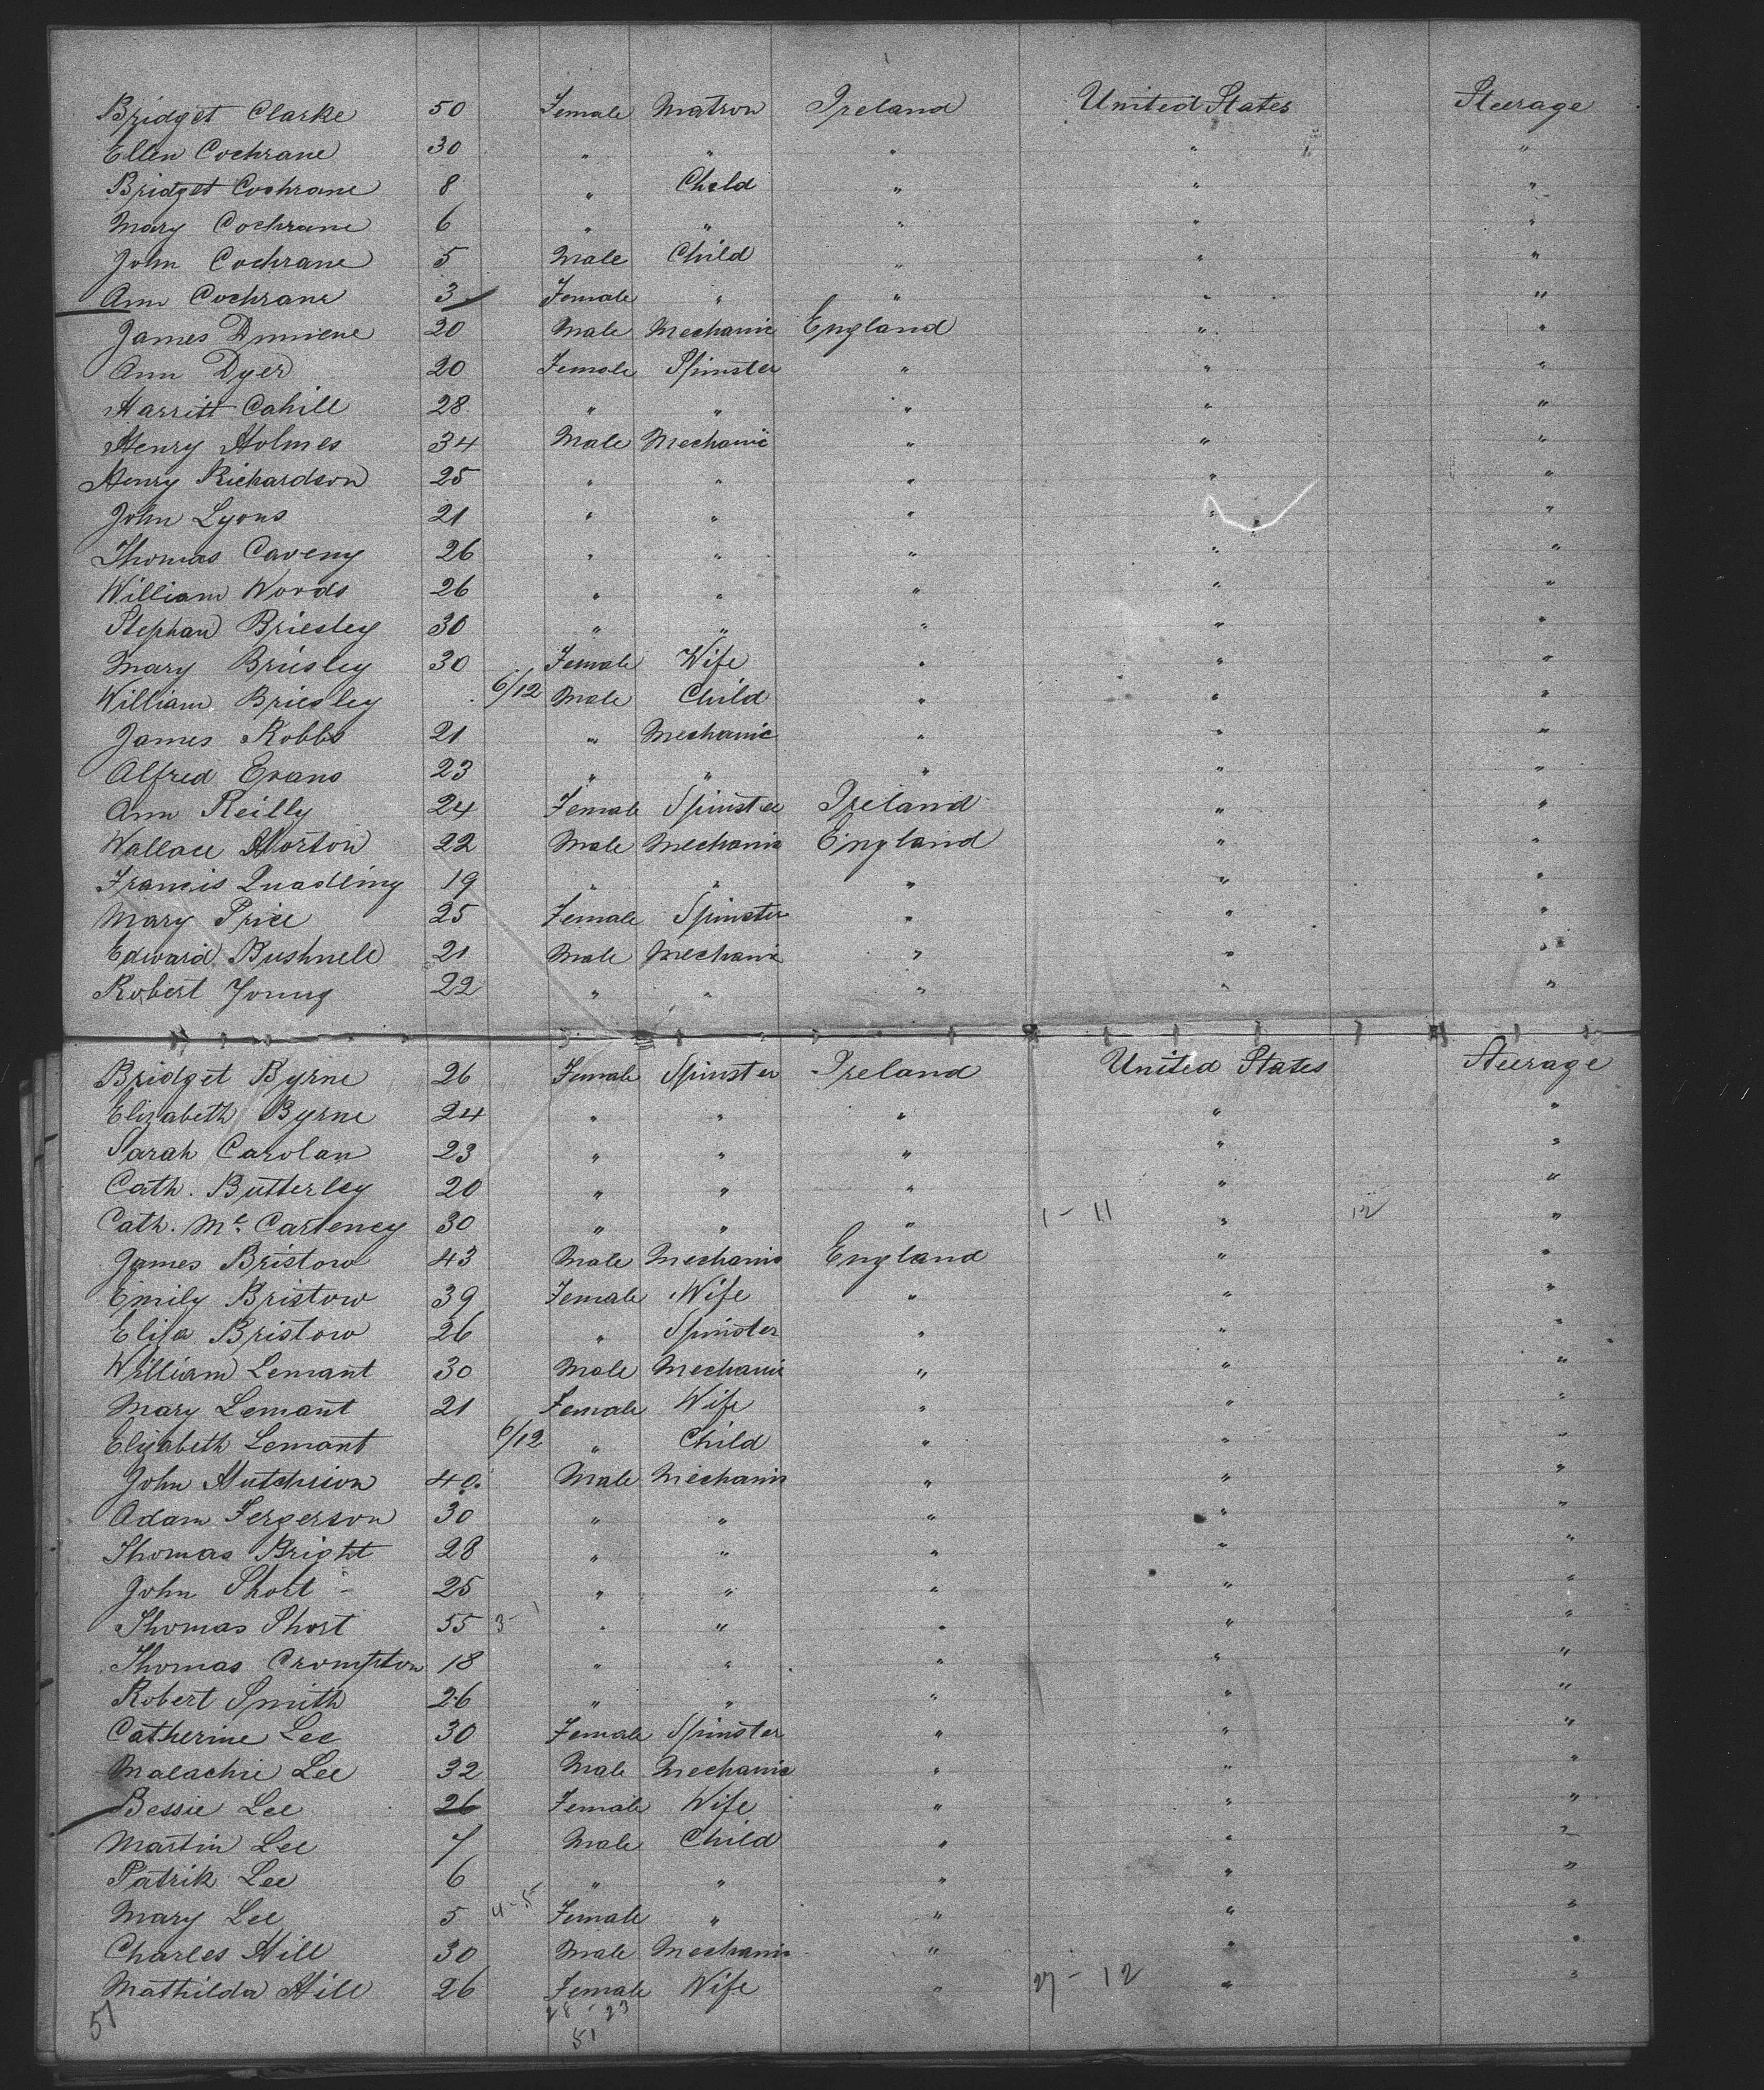 Bridget Clarke 50 Female Matron Ireland United States Steerage
Ellen Cochrane 30 " " " " "
Bridget Cochrane 8 " Child " " "
Mary Cochrane 6 " " " " "
John Cochrane 5 Male Child " " "
Ann Cochrane 3 Female " " " "
James 20 Male Mechanic England " "
Ann Dyer 20 Female Spinster " " "
Harritt Cahill 28 " " " " "
Henry Holmes 34 Male Mechanic " " "
Henry Richardson 25 " " " " "
John Lyons 21 " " " " "
Thomas Caveny 26 " " " " "
William Woods 26 " " " " "
Stephan Briesley 30 " " " " "
Mary Briesley 30 Female Wife " " "
William Briesley 6/12 Male Child " " "
James Robbs 21 " Mechanic " " "
Alfred Evans 23 " " " " "
Ann Reilly 24 Female Spinster Ireland " "
Wallace Horton 22 Male Mechanic England " "
Francis Quadling 19 " " " " "
Mary Price 25 Female Spinster " " "
Edward Bushnell 21 Male Mechanic " " "
Robert Young 22 " " " " "
Bridget Byrne 26 Female Spinster Ireland United States Steerage
Elizabeth Byrne 24 " " " " "
Sarah Carolan 23 " " " " "
Cath. Butterley 20 " " " " "
Cath. Mc Carteney 30 " " " 1 - 11 " 12 "
James Bristow 43 Male Mechanic England " "
Emily Bristow 39 Female Wife " " "
Eliza Bristow 26 " Spinster " " "
William Lemant 30 Male Mechanic " " "
Mary Lemant 21 Female Wife " " "
Elizabeth Lemant 6/12 " Child " " "
John Hutchison 40 Male Mechanic " " "
Adam Fergerson 30 " " " " "
Thomas Bright 28 " " " " "
John Short 25 " " " " "
Thomas Short 55 3 - 1 " " " " "
Thomas Crompton 18 " " " " "
Robert Smith 26 " " " " "
Catherine Lee 30 Female Spinster " " "
Malachie Lee 32 Male Mechanic " " "
Bessie Lee 26 Female Wife " " "
Martin Lee 7 Male Child " " "
Patrik Lee 6 " " " " "
Mary Lee 5 4 - 5 Female " " " "
Charles Hill 30 Male Mechanic " " "
Mathilda Hill 26 Female Wife " 27 - 12 " "
51 28 - 23
51